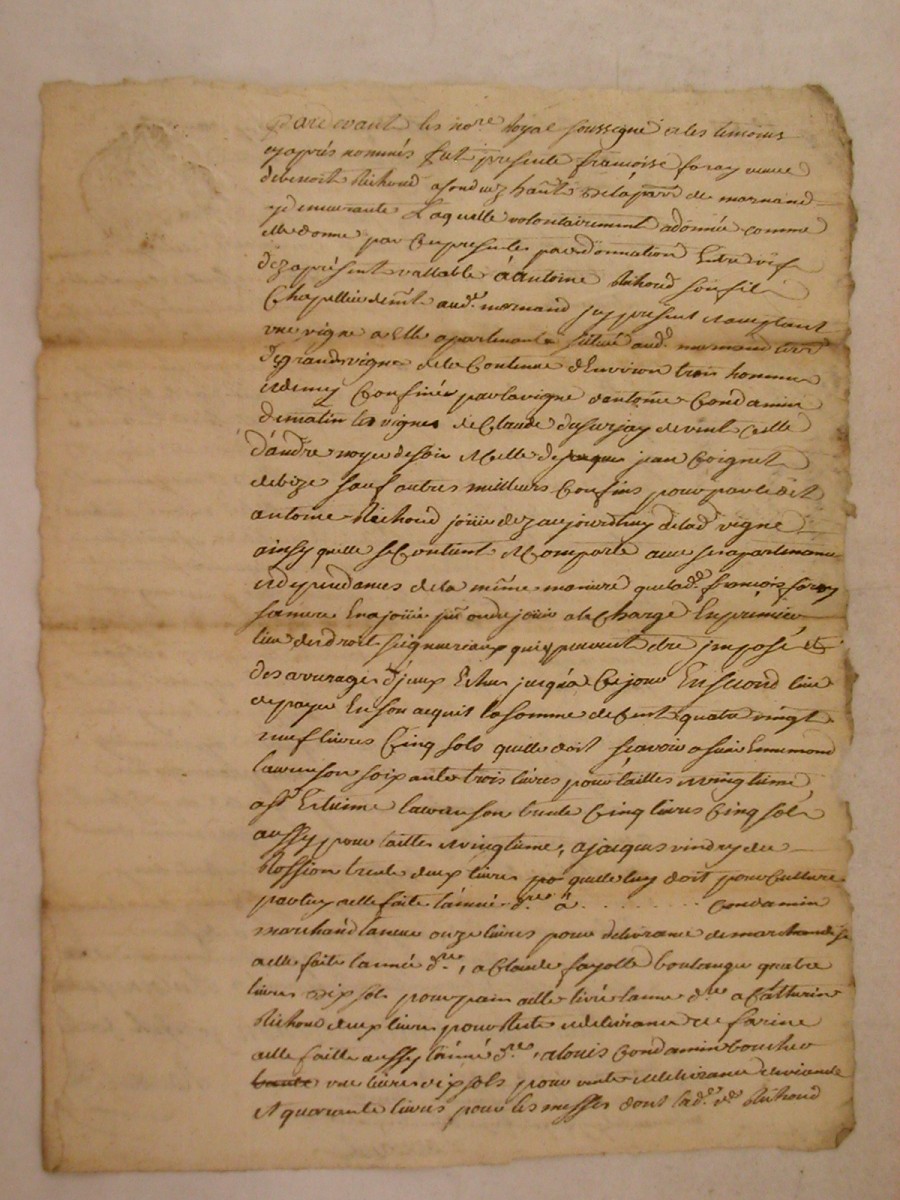 Pardevant les no.re Royal soussigné et les temoins
cy après nommés fut presente françoise foray veuve
de benoit Richoud de la parr de mornand
y demeurante Laquelle volontairement a donnée comme
elle donne par Ces presentes par donnation Entre vif
dez aprésent vallable à antoine Richoud son fil
Chapellier dem.t aud. mornand jcy present et acceptant
une vigne a Elle apartenante sittuée aud. mornand
des grands vignes de la Contenue d'Environ trois hommes
et demy Confinée par la vigne d'antoine Condamin
de matin les vignes de Claude de vent Celle
d'andré noyer de soir et Celle de jean Coignet
de bize sauf autres meilleurs Confins pour par led.t
antoine Richoud joüir dez aujourdhuy de lad. vigne
ainsy quelle se Contient et Comporte avec ses apartenances
et dependances de la même maniere que lad.e françoise foray
sa mere En a joüie pû ou dû joüir a la Charge En premier
lieu des droits seigneuriaux qui y peuvent etre jmposé et
des arrerages d'jceux Echus jusqu'a Ce jour En second lieu
de payer En son acquit la somme de Cent quatre vingt
neuf livres Cinq sols quelle doit scavoir a sieur Ennemond
lauvenson soixante trois livres pour tailles et vingtieme,
a s.r Etienne lauvenson trente Cinq livres Cinq sols
aussy pour tailles et vingtieme, a jacques vindry du
Rossion trente deux livres quelle luy doit pour Culture
par luy a elle faite l'année d.re à ........ Condamin
marchand taneur onze livres pour delivrance de marchandise
a elle faite l'année d.re, a Claude fayolle boulanger quatre
livres dix sols pour pain a elle livré l'année d.re a Catherin
Richoud deux livres pour Reste de delivrance de farine
a elle faitte aussy l'année d.re, a louis Condamin boucher
une livre dix sols pour vente et delivrance de viande
et quarante livres pour les messes dont lad.e v.ve Richoud